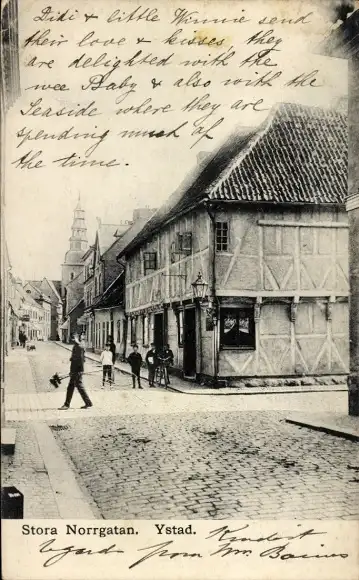 Didi & little Winnie send
their love & kisses, they
are delighted with the
wee Baby & also with the
Seaside where they are
spending much of
the time.
Stora Norrgatan. Ystad. Kindest
regards from Wm. Baines